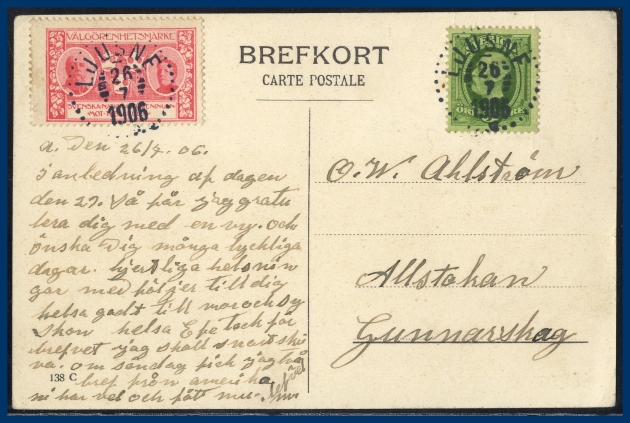 VÄLGÖRENHETSMÄRKE
SVENSKA NATIONALFÖRENINGEN
MOT
LJUSNE
26
7
1906
BREFKORT
CARTE POSTALE
LJUSNE
26
7
1906
a. Den 26/7. 06.
i anledning af dagen
den 27. Så får jag gratu
lera dig med en vy. och
önska Dig många lyckliga
dagar. hjertliga helsnin
gar med följer till dig
helsa godt till mor och sy
skon helsa tack för
brefvet jag skall snart skri
va. om söndag fick jag två
bref från amerika
ni har vel och fått
138 C
O. W. Ahlström
Allstakan
Gunnarskog